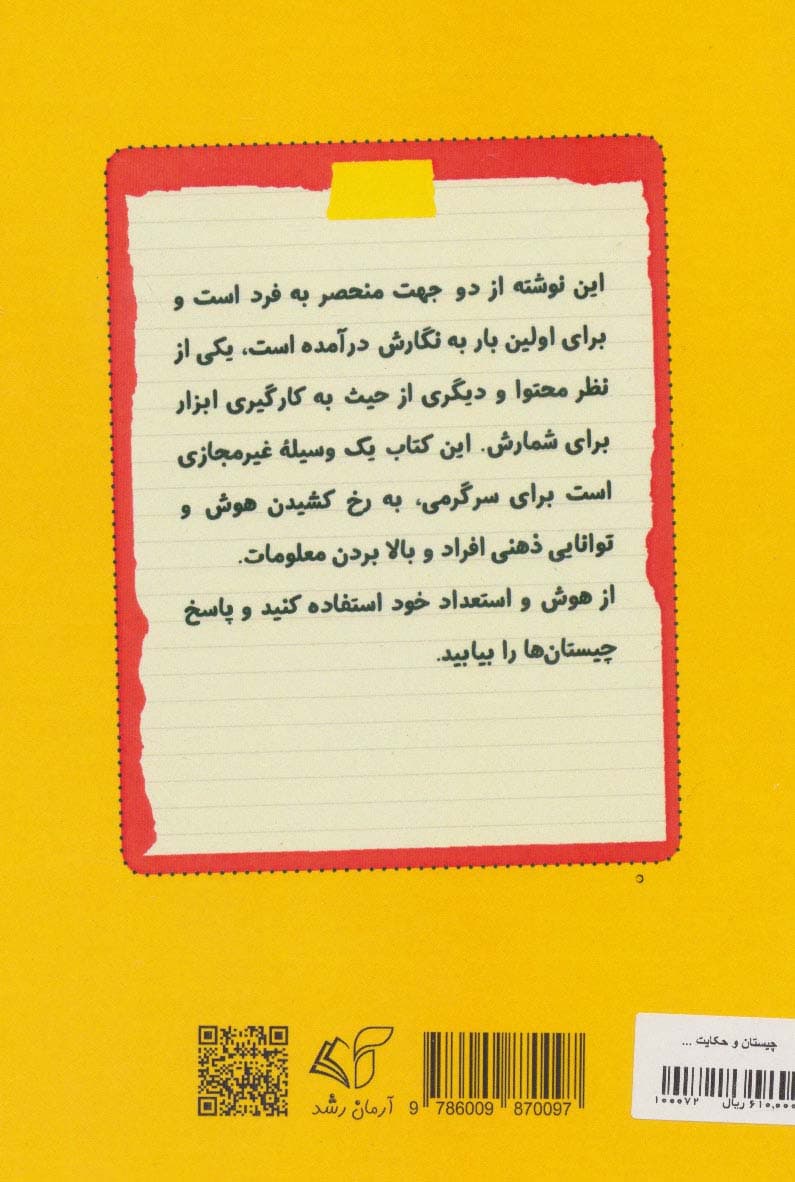 این نوشته از دو جهت منحصر به فرد است و
برای اولین بار به نگارش درآمده است، یکی از
نظر محتوا و دیگری از حیث به کارگیری ابزار
برای شمارش. این کتاب یک وسیلهٔ غیرمجازی
است برای سرگرمی، به رخ کشیدن هوش و
توانایی ذهنی افراد و بالا بردن معلومات.
از هوش و استعداد خود استفاده کنید و پاسخ
چیستان‌ها را بیابید.
چیستان و حکایت ...
۶۱۰,۰۰۰ ریال
۱۰۰۰۷۲
آرمان رشد
9 786009 870097